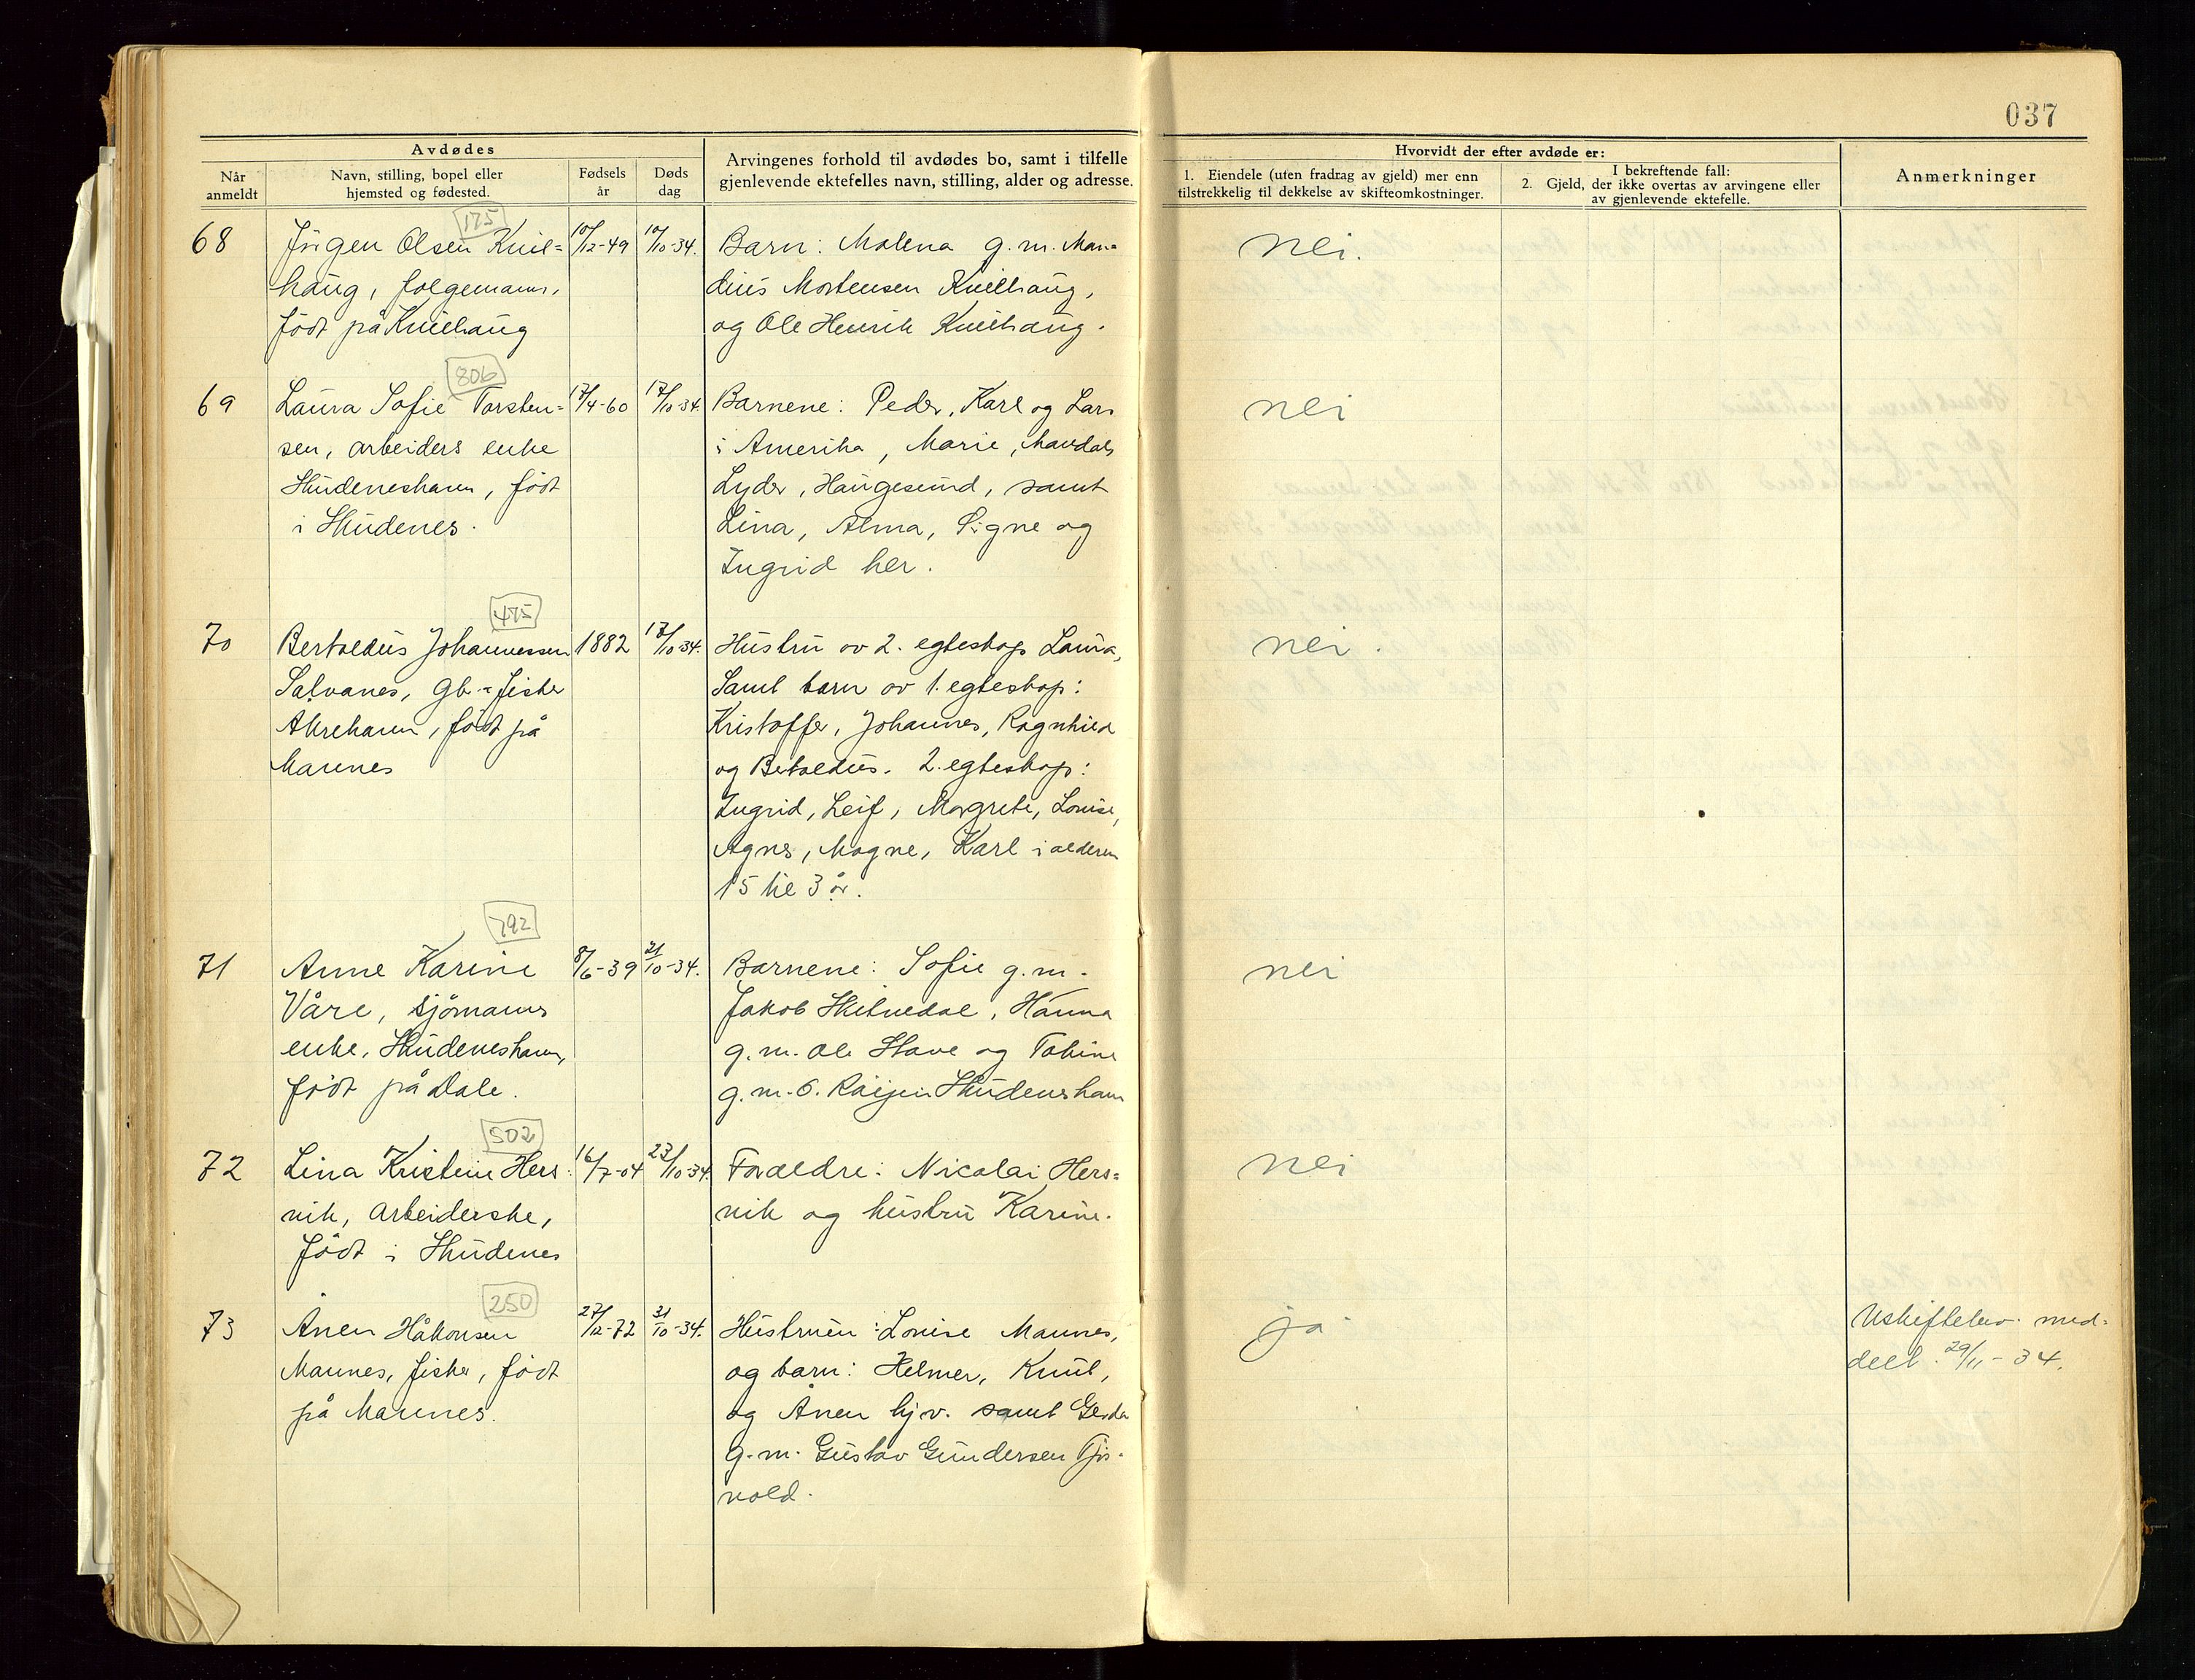 037
Avdødes
Når
anmeldt
Navn, stilling, bopel eller
hjemsted og fødested.
Fødsels
år
Døds
dag
Arvingenes forhold til avdødes bo, samt i tilfelle
gjenlevende ektefelles navn, stilling, alder og adresse.
Hvorvidt der efter avdøde er:
1. Eiendele (uten fradrag av gjeld) mer enn
tilstrekkelig til dekkelse av skifteomkostninger.
I bekreftende fall:
2. Gjeld, der ikke overtas av arvingene eller
av gjenlevende ektefelle.
Anmerkninger
175
68 Jörgen Olsen Knel= 10/12-49 10/10-34. Barn: Malena g. m. Man= nei.
haug, folgemann, dius Mortensen Knelhaug,
födt på Knelhaug og Ole Henrik Knelhaug.
806
69 Laura Sofie Torsten= 17/4-60 17/10-34. Barnene: Peder, Karl og Lars nei
sen, arbeiders enke i Amerika, Marie, Mandals
Skudeneshavn, födt Lyder, Haugesund, samt
i Skudenes. Lina, Alma, Signe og
Ingrid her.
475
70 Bertoldus Johannessen 1882 17/10-34. Hustru av 2. egteskap Laura, nei.
Salvanes, gb. fisker Samt barn av 1. egteskap:
Åkrehavn, födt på Kristoffer, Johannes, Ragnhild
Mannes og Betoldus. 2. egteskap:
Ingrid, Leif, Margrete, Louise,
Agnes, Magne, Karl i alderen
15 til 3 år.
792
71 Anne Karine 8/6-39 21/10-34. Barnene: Sofie g. m. nei
Våre, sjömanns Jakob Hana
enke, Skudeneshavn, g. m. Ole Stave og Tobine
födt på Dale. g. m. Skudeneshavn
502
72 Lina Kristine Hers= 16/7-04 23/10-34. Foreldre: Nicolai Hers= nei
vik, arbeiderske, vik og hustru Karine.
födt i Skudenes
250
73 Ånen Håkonsen 27/12-72 31/10-34. Hustruen: Louise Mannes, ja Uskiftebev. med=
Mannes, fisker, födt og barn: Helmer, Knut, delt 29/11-34.
på Mannes. og Ånen hjv. samt Gerda
g. m. Gustav Gundersen Tjös=
vold.